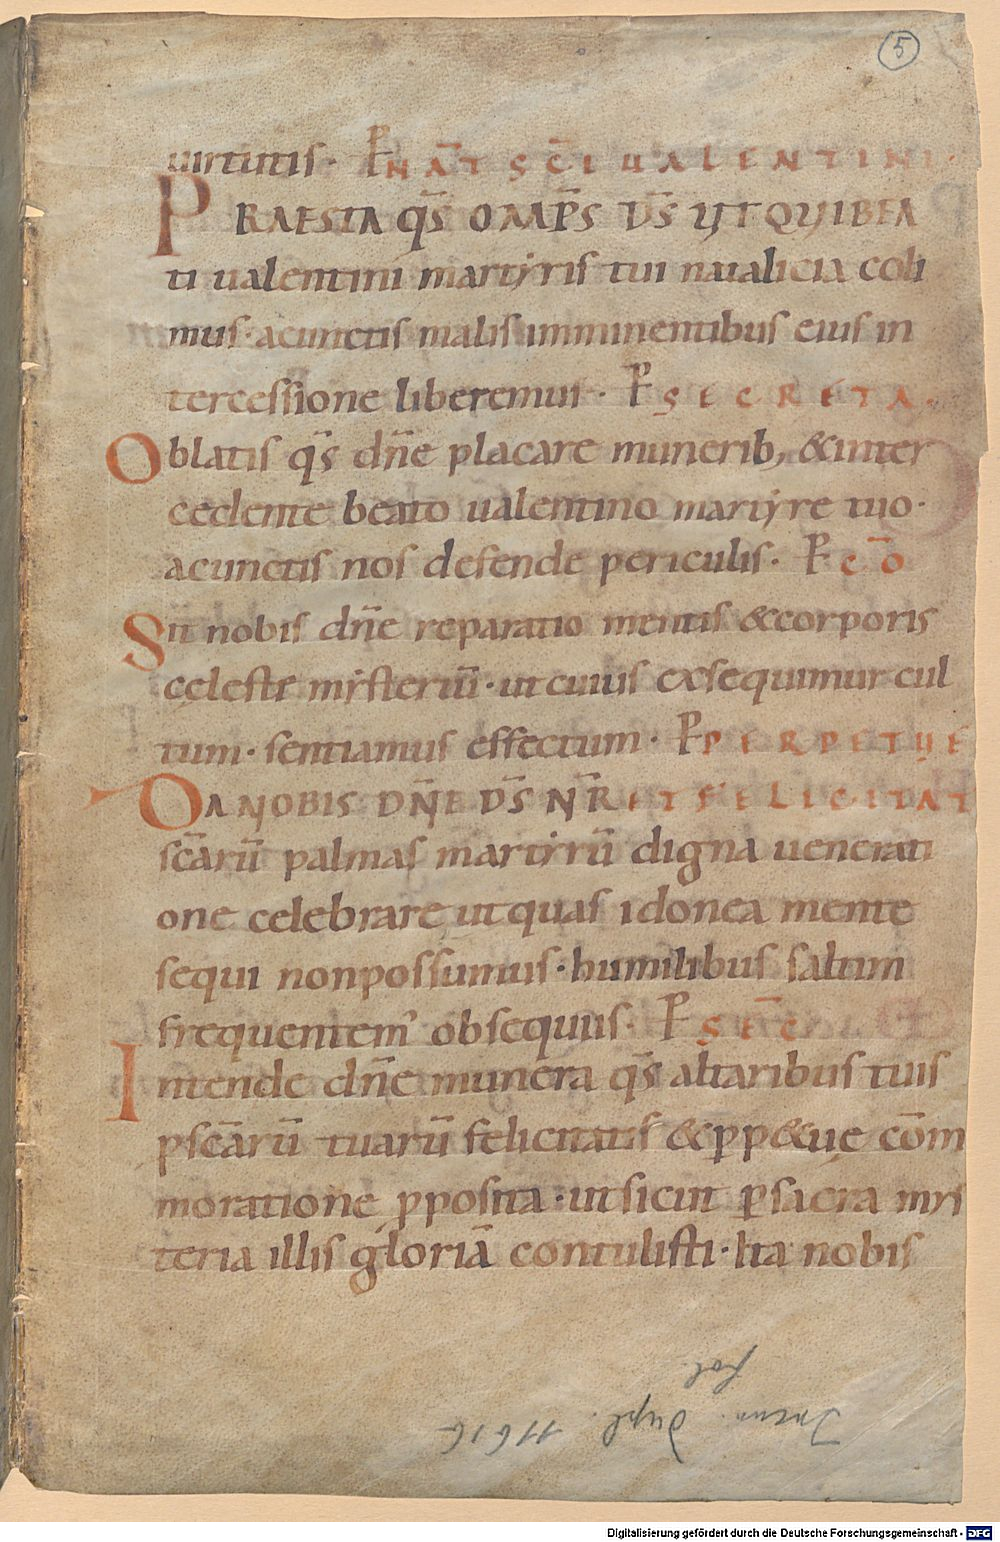 5
uirtutis · P NAT̄ SC̄I UALENTINI ·
PRAESTA Q̄S OMP̄S D̄S UT QUI BEA
ti ualentini martyris tui natalicia coli
mus · acunctis malis imminentibus eius in
tercessione liberemur · P SECRETA ·
Oblatis q̄s dn̄e placare munerib; & inter
cedente beato ualentino martyre tuo ·
acunctis nos defende periculis · P CŌ
Sit nobis dn̄e reparatio mentis & corporis
cęleste mysteriū · ut cuius exsequimur cul
tum · sentiamus effectum · P PERPETUĘ
DA NOBIS DN̄E D̄S N̄R ET FELICITAT
sc̄arū palmas martyrū digna uenerati
one celebrare ut quas idonea mente
sequi non possumus · humilibus saltim
frequentem' obsequiis · P SEC̄
Intende dn̄e munera q̄s altaribus tuis
p sc̄arū tuarū felicitatis & ꝑp&uę cōm
moratione ꝓposita · ut sicut ꝑ sacra mys
teria illis gloriā contulisti · Ita nobis
Incun. Dupl. 11616
fol.
Digitalisierung gefördert durch die Deutsche Forschungsgemeinschaft - DFG